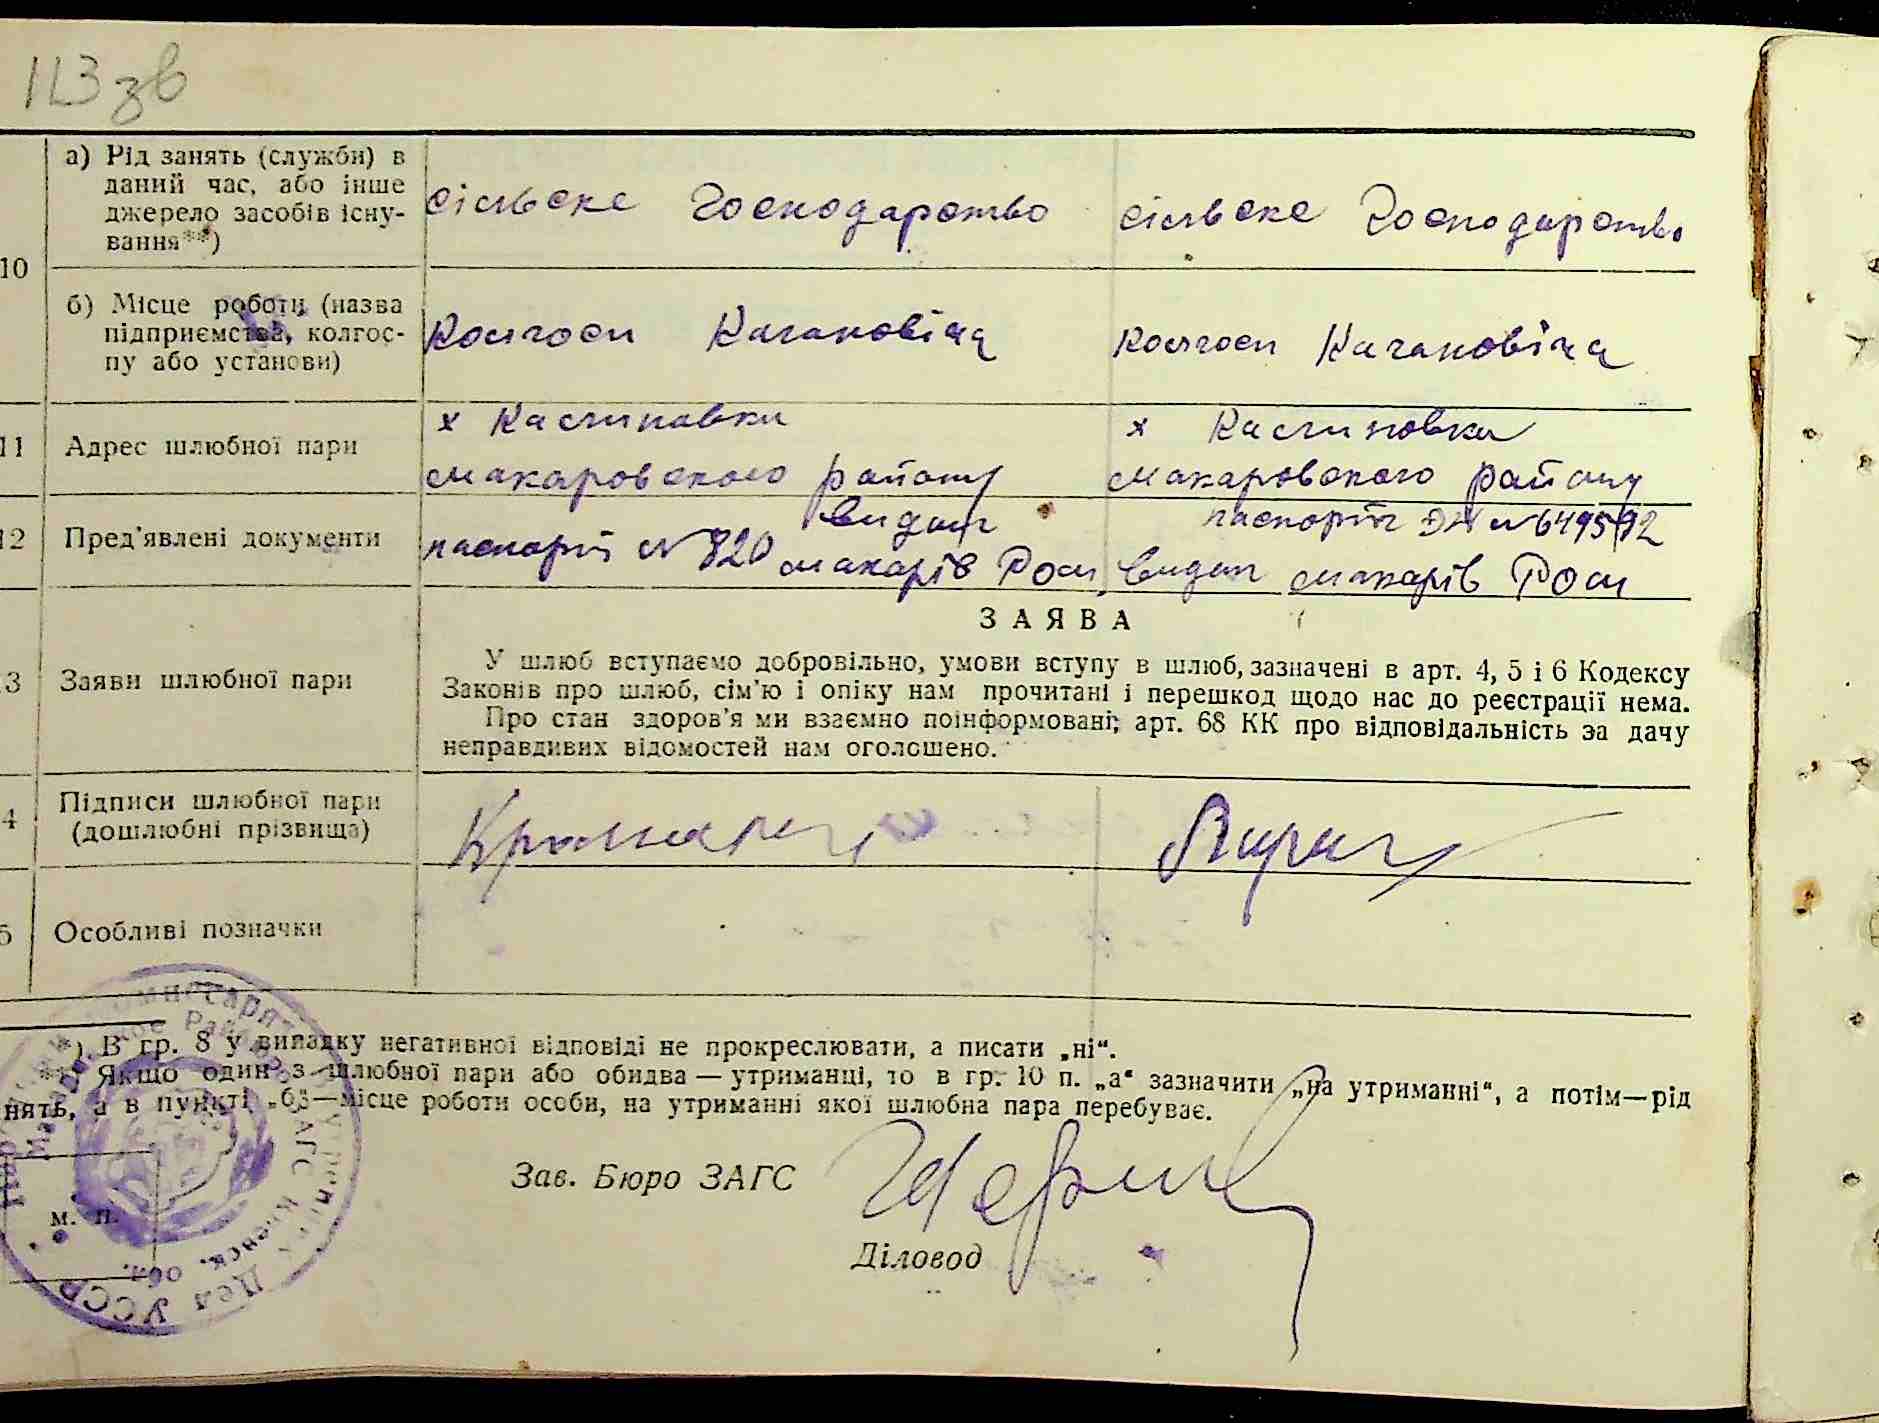 113 зв
10
а) Рід занять (служби) в
даний час, або інше
джерело засобів існу-
вання**)
сільське господарство
сільське господарство
б) Місце роботи (назва
підприємства, колгос-
пу або установи)
Колгосп Кагановіча
Колгосп Кагановіча
11
Адрес шлюбної пари
х Калиновка
макаровського району
х Калиновка
макаровського району
12
Пред'явлені документи
видан
паспорт № 820 макарів Ром
паспорт № 649592
видан макарів Ром
3
Заяви шлюбної пари
ЗАЯВА
У шлюб вступаємо добровільно, умови вступу в шлюб, зазначені в арт. 4, 5 і 6 Кодексу
Законів про шлюб, сім'ю і опіку нам прочитані і перешкод щодо нас до реєстрації нема.
Про стан здоров'я ми взаємно поінформовані; арт. 68 КК про відповідальність за дачу
неправдивих відомостей нам оголошено.
4
Підписи шлюбної пари
(дошлюбні прізвища)
5
Особливі позначки
*) В гр. 8 у випадку негативної відповіді не прокреслювати, а писати „ні“.
** Якщо один з шлюбної пари або обидва — утриманці, то в гр. 10 п. „а“ зазначити „на утриманні“, а потім — рід
нять, а в пункті „б“ — місце роботи особи, на утриманні якої шлюбна пара перебуває.
Зав. Бюро ЗАГС
м. п.
Діловод
ЗАГС Киевск. обл.
Дел УССР